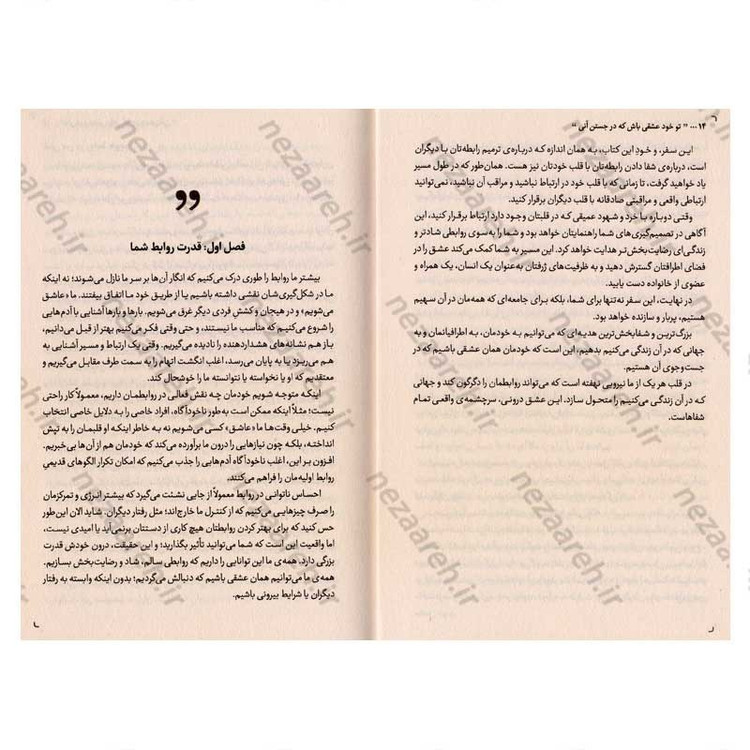 ۱۴ ... " تو خود عشقی باش که در جستن آنی "
این سفر، و خودِ این کتاب، به همان اندازه که درباره‌ی ترمیم رابطه‌تان با دیگران
است، درباره‌ی شفا دادن رابطه‌تان با قلب خودتان نیز هست. همان‌طور که در طول مسیر
یاد خواهید گرفت، تا زمانی که با قلب خود در ارتباط نباشید و مراقب آن نباشید، نمی‌توانید
ارتباطی واقعی و مراقبتی صادقانه با قلب دیگران برقرار کنید.
وقتی دوباره با خرد و شهود عمیقی که در قلبتان وجود دارد ارتباط برقرار کنید، این
آگاهی در تصمیم‌گیری‌های شما راهنمایتان خواهد بود و شما را به‌سوی روابطی شادتر و
زندگی‌ای رضایت‌بخش‌تر هدایت خواهد کرد. این مسیر به شما کمک می‌کند عشق را در
فضای اطرافتان گسترش دهید و به ظرفیت‌های ژرفتان به‌عنوان یک انسان، یک همراه و
عضوی از خانواده دست یابید.
در نهایت، این سفر نه‌تنها برای شما، بلکه برای جامعه‌ای که همه‌مان در آن سهیم
هستیم، پربار و سازنده خواهد بود.
بزرگ‌ترین و شفابخش‌ترین هدیه‌ای که می‌توانیم به خودمان، به اطرافیانمان و به
جهانی که در آن زندگی می‌کنیم بدهیم، این است که خودمان همان عشقی باشیم که در
جست‌وجوی آن هستیم.
در قلب هر یک از ما نیرویی نهفته است که می‌تواند روابطمان را دگرگون کند و جهانی
که در آن زندگی می‌کنیم را متحول سازد. این عشق درونی، سرچشمه‌ی واقعی تمام
شفاهاست.
فصل اول: قدرت روابط شما
بیشتر ما روابط را طوری درک می‌کنیم که انگار آن‌ها بر سر ما نازل می‌شوند؛ نه اینکه
ما در شکل‌گیری‌شان نقشی داشته باشیم یا از طریق خود ما اتفاق بیفتند. ما «عاشق
می‌شویم» و در هیجان و کششِ فردی دیگر غرق می‌شویم. بارها و بارها آشنایی با آدم‌هایی
را شروع می‌کنیم که مناسب ما نیستند، و حتی وقتی فکر می‌کنیم بهتر از قبل می‌دانیم،
باز هم نشانه‌های هشداردهنده را نادیده می‌گیریم. وقتی یک ارتباط و مسیر آشنایی به
هم می‌ریزد یا به پایان می‌رسد، اغلب انگشت اتهام را به سمت طرف مقابل می‌گیریم و
معتقدیم که او یا نخواسته یا نتوانسته ما را خوشحال کند.
اینکه متوجه شویم خودمان چه نقش فعالی در روابطمان داریم، معمولاً کار راحتی
نیست؛ مثلاً اینکه ممکن است به‌طور ناخودآگاه، افراد خاصی را به دلایل خاصی انتخاب
کنیم. خیلی وقت‌ها ما «عاشق» کسی می‌شویم نه به خاطر اینکه او قلبمان را به تپش
انداخته، بلکه چون نیازهایی را درون ما برآورده می‌کند که خودمان هم از آن‌ها بی‌خبریم.
افزون بر این، اغلب ناخودآگاه آدم‌هایی را جذب می‌کنیم که امکان تکرار الگوهای قدیمیِ
روابط اولیه‌مان را فراهم می‌کنند.
احساس ناتوانی در روابط معمولاً از جایی نشئت می‌گیرد که بیشتر انرژی و تمرکزمان
را صرف چیزهایی می‌کنیم که از کنترل ما خارج‌اند؛ مثل رفتار دیگران. شاید الان این‌طور
حس کنید که برای بهتر کردن روابطتان هیچ کاری از دستتان برنمی‌آید یا امیدی نیست،
اما واقعیت این است که شما می‌توانید تأثیر بگذارید؛ و این حقیقت، درون خودش قدرت
بزرگی دارد. همه‌ی ما این توانایی را داریم که روابطی سالم، شاد و رضایت‌بخش بسازیم.
همه‌ی ما می‌توانیم همان عشقی باشیم که دنبالش می‌گردیم؛ بدون اینکه وابسته به رفتار
دیگران یا شرایط بیرونی باشیم.
nezaareh.ir
nezaareh.ir
nezaareh.ir
nezaareh.ir
nezaareh.ir
nezaareh.ir
nezaareh.ir
nezaareh.ir